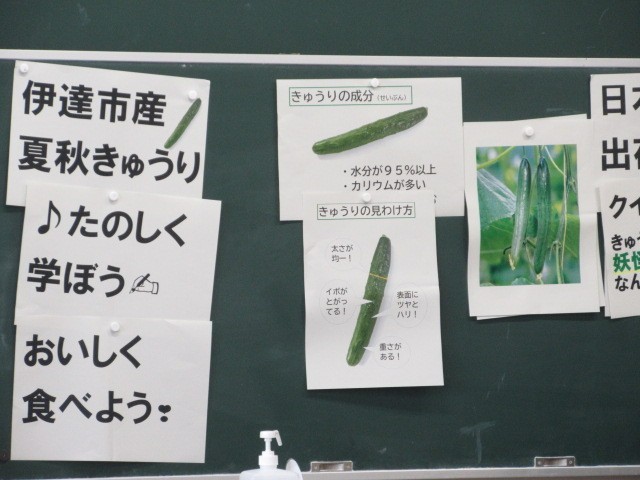 伊達市産
夏秋きゅうり
♪たのしく
学ぼう✍
おいしく
食べよう❣
きゅうりの成分（せいぶん）
・水分が９５％以上
・カリウムが多い
きゅうりの見わけ方
太さが
均一！
イボが
とがっ
てる！
表面に
ツヤと
ハリ！
重さが
ある！
日
出
クイ
きゅ
妖怪
なん